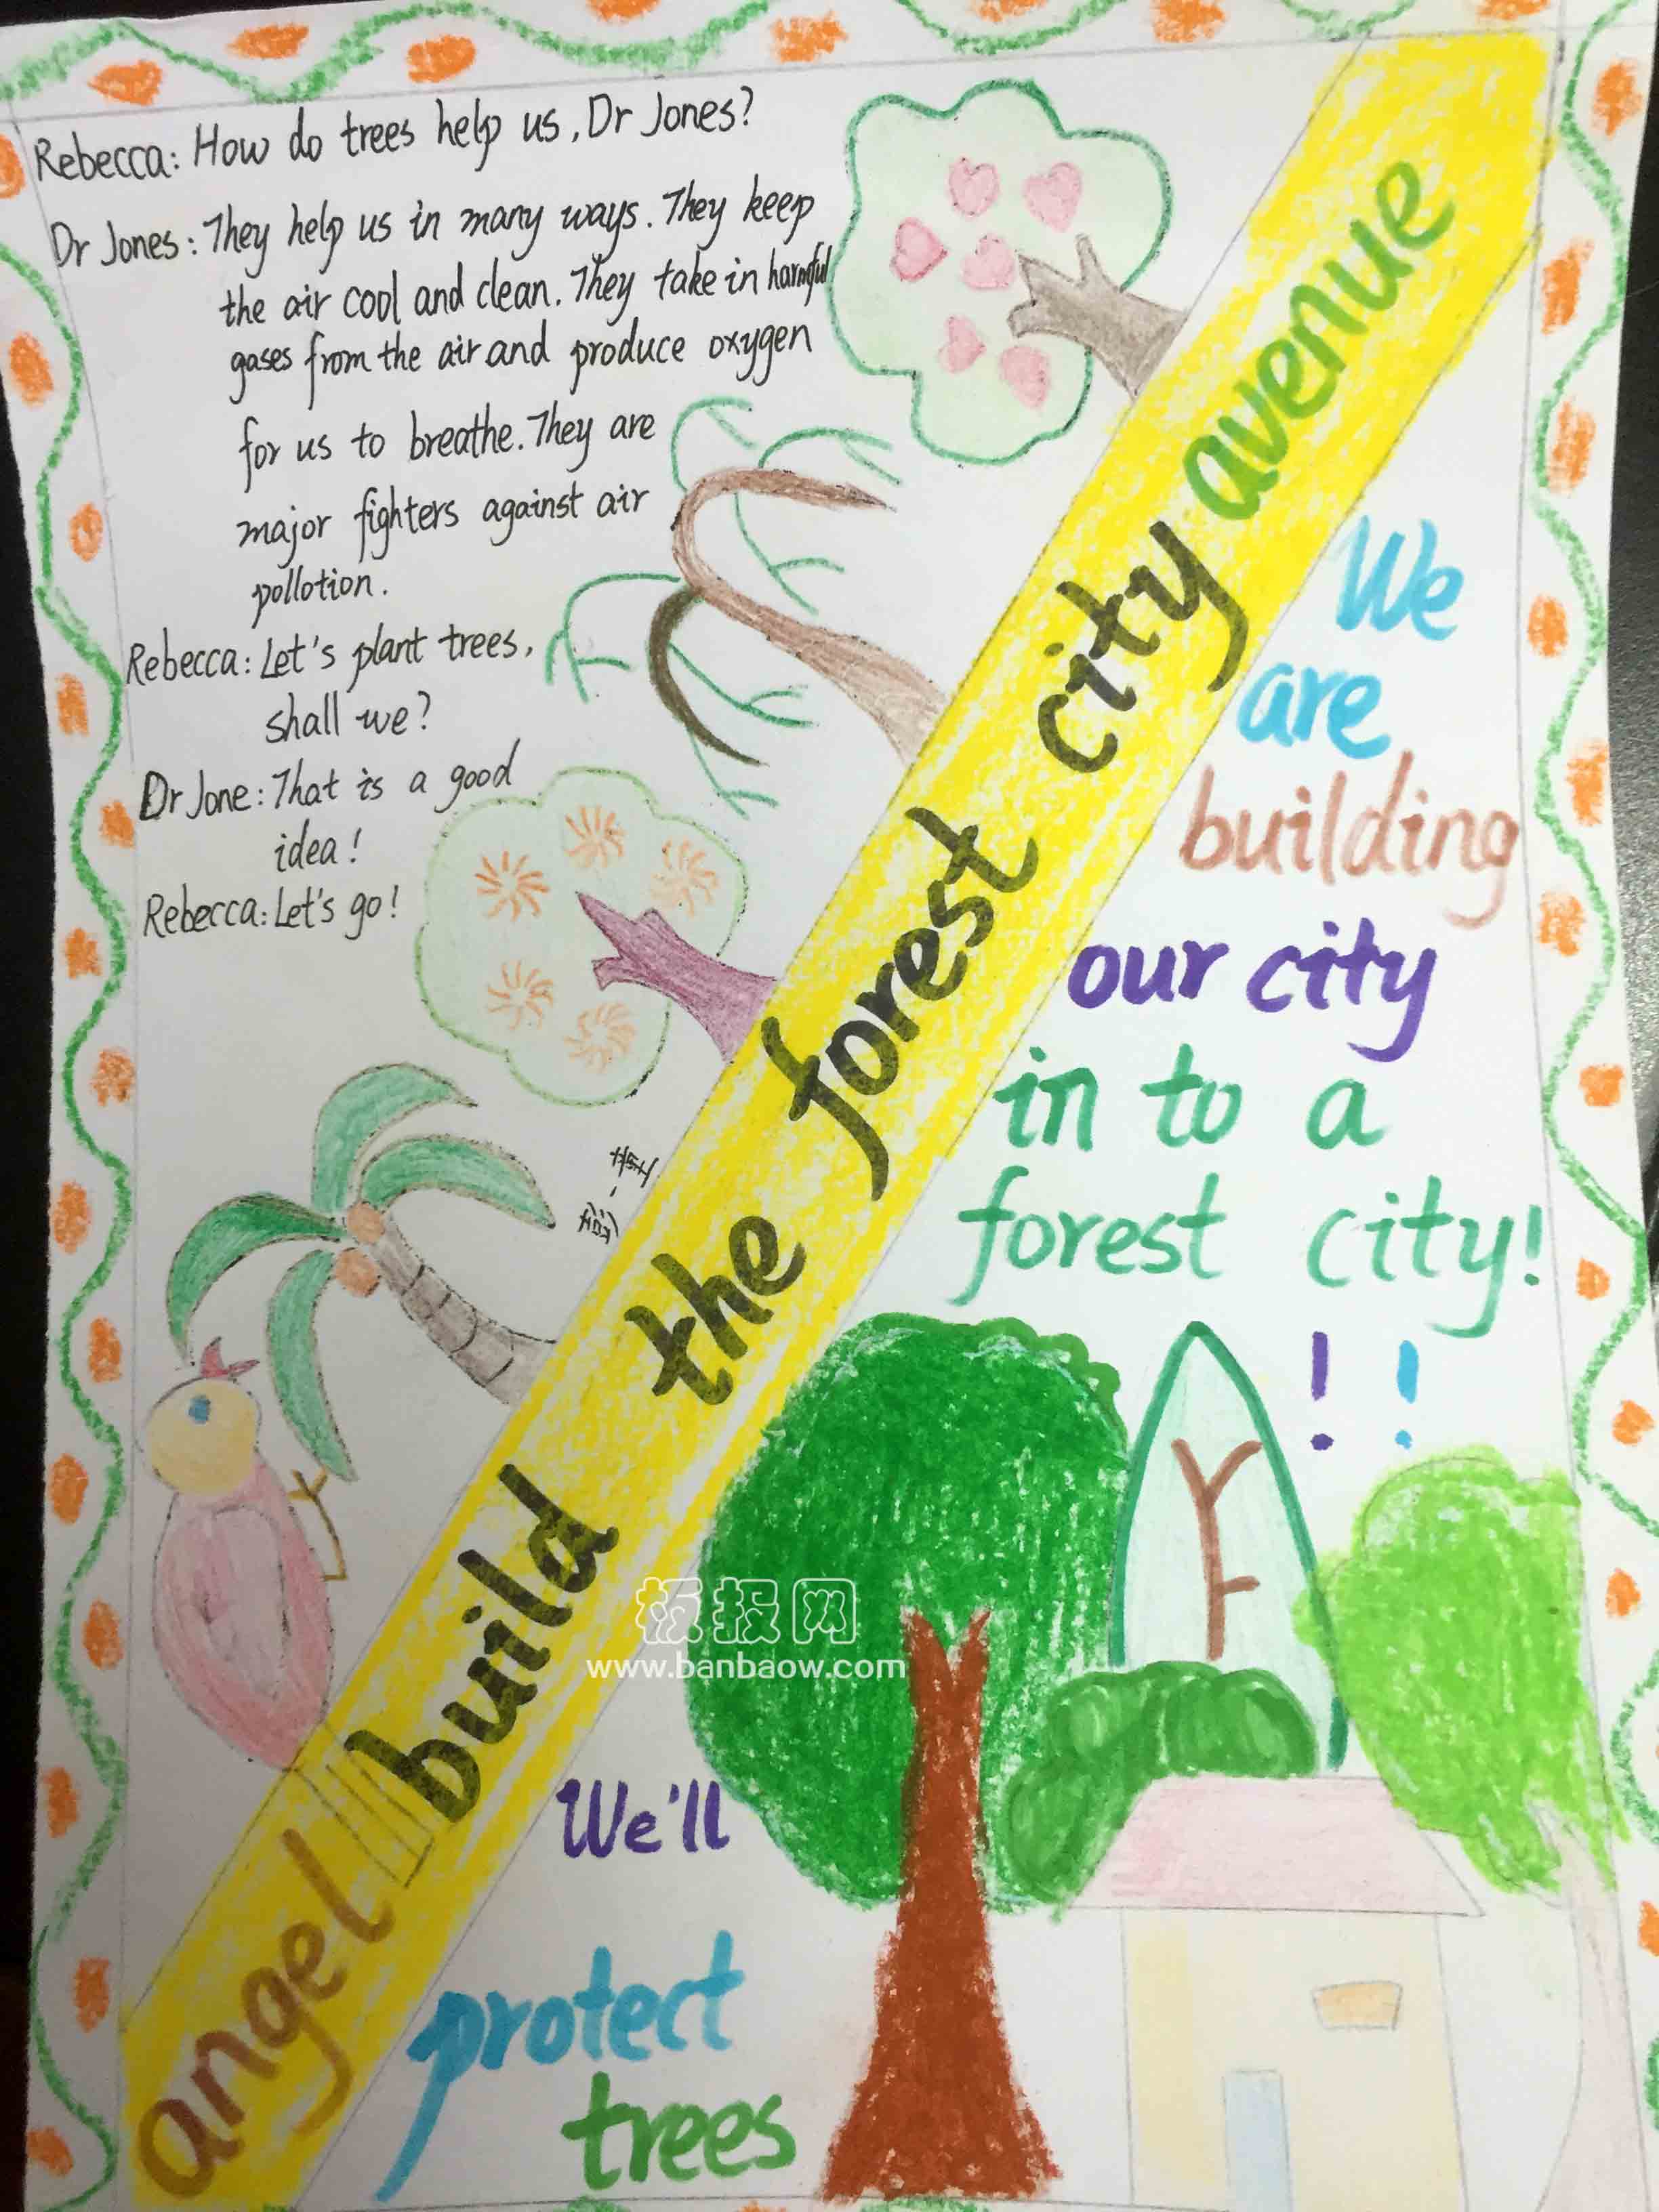 Rebecca: How do trees help us, Dr Jones?
Dr Jones: They help us in many ways. They keep
the air cool and clean. They take in harmful
gases from the air and produce oxygen
for us to breathe. They are
major fighters against air
pollotion.
Rebecca: Let's plant trees,
shall we?
Dr Jone: That is a good
idea!
Rebecca: Let's go!
angel build the forest city avenue
We
are
building
our city
in to a
forest city!
! !
We'll
protect
trees
板报网
www.banbaow.com